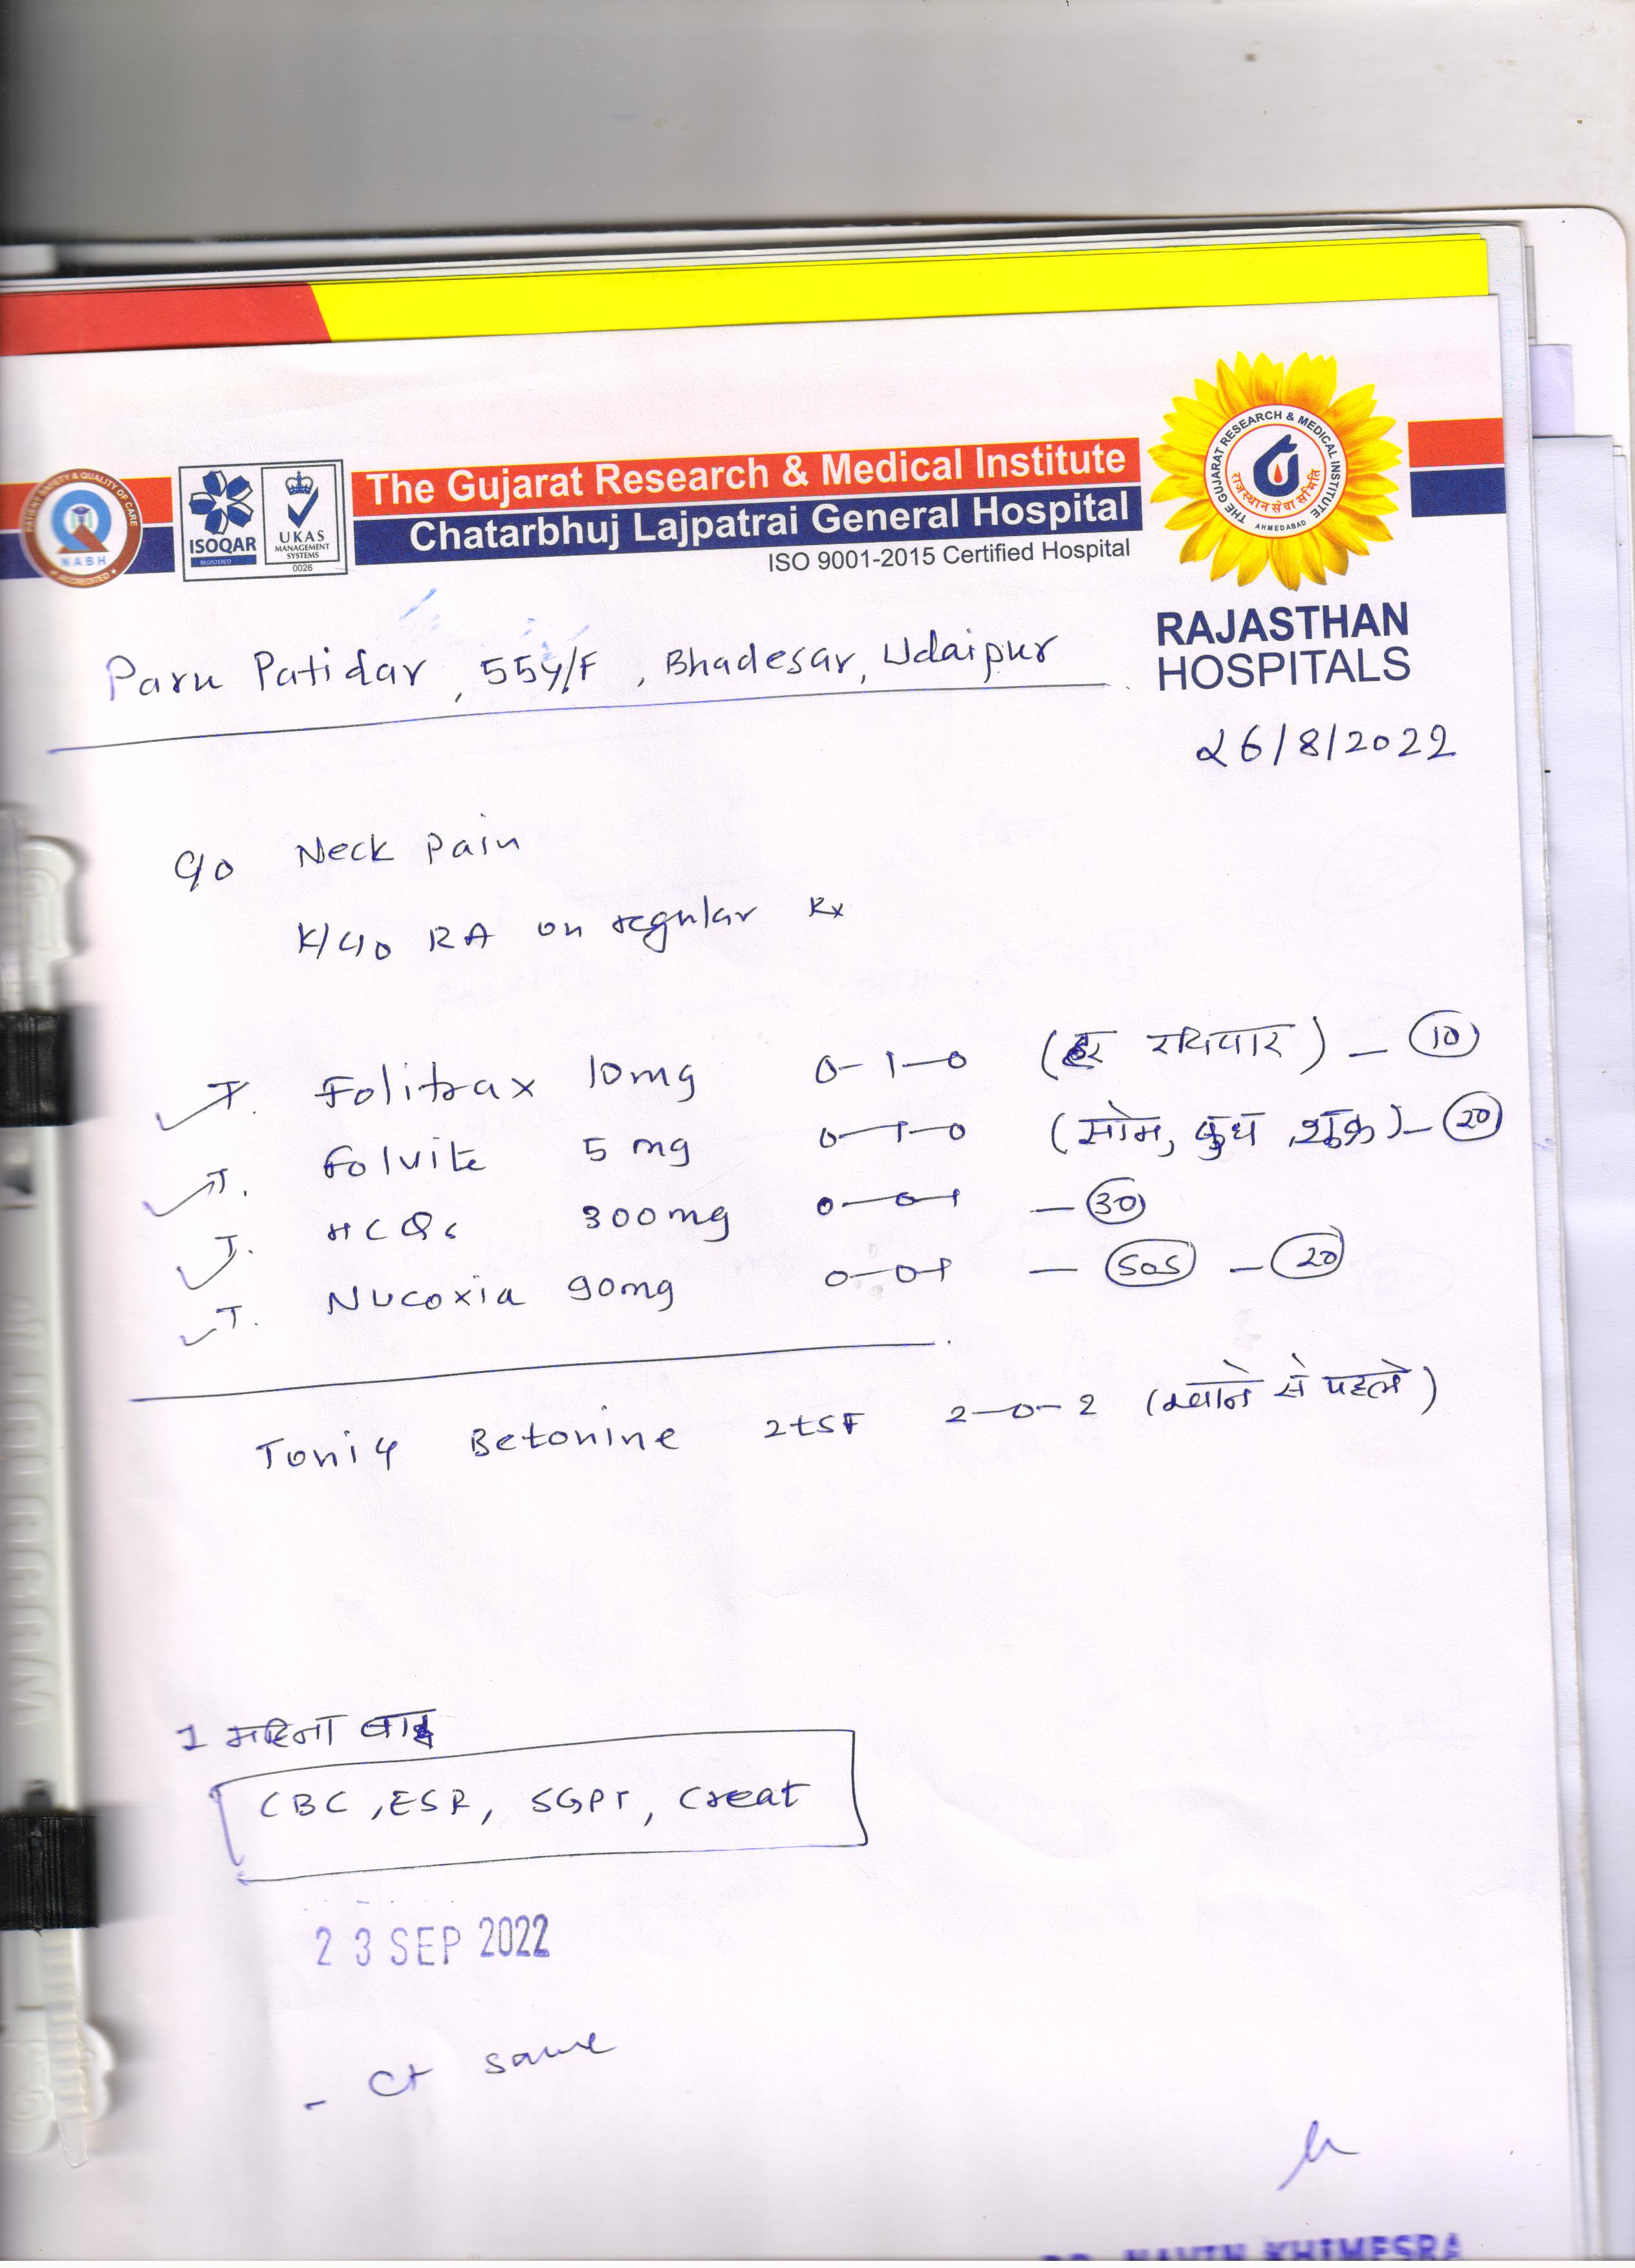 PATIENT SAFETY & QUALITY OF CARE
NABH
ACCREDITED
ISOQAR
REGISTERED
UKAS
MANAGEMENT
SYSTEMS
0026
The Gujarat Research & Medical Institute
Chatarbhuj Lajpatrai General Hospital
ISO 9001-2015 Certified Hospital
THE GUJARAT RESEARCH & MEDICAL INSTITUTE
राजस्थान सेवा समिति
AHMEDABAD
RAJASTHAN
HOSPITALS
Paru Patidar, 55y/F, Bhadesar, Udaipur
26/8/2022
C/o Neck Pain
K/C/o RA on regular Rx
T. Folitrax 10mg 0-1-0 (हर रविवार) - 10
T. Folvite 5 mg 0-1-0 (सोम, बुध, शुक्र) - 20
T. HCQs 300mg 0-0-1 - 30
T. Nucoxia 90mg 0-0-1 - SOS - 20
Betonine 2tsf 2-0-2 (खाने से पहले)
1 महिना बाद
CBC, ESR, SGPT, Creat
23 SEP 2022
- Ct same
DR. NAVIN KHIMESRA